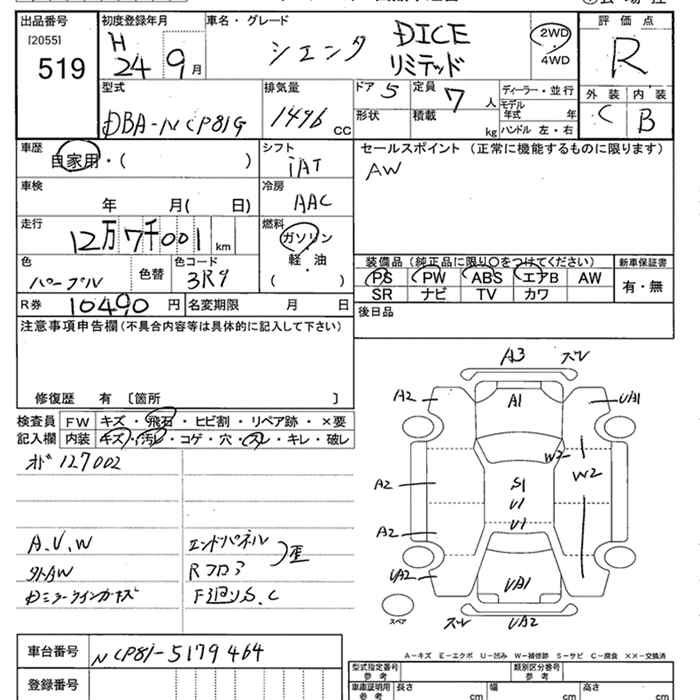 出品番号 初度登録年月 車名・グレード 評価点
[2055]
519
H 24 9月 シエンタ DICE リミテッド 2WD 4WD R
型式 排気量 ドア 5 定員 7人 ディーラー・並行 外装 内装
DBA-NCP81G 1496cc 形状 積載 kg モデル年式 年 C B
ハンドル 左・右
車歴 シフト セールスポイント(正常に機能するものに限ります)
自家用・( ) iAT AW
車検 冷房
年 月( 日) AAC
走行 燃料
12万7千001km ガソリン
軽・油
( )
装備品(純正品に限り○をつけてください) 新車保証書
色 色替 色コード PS PW ABS エアB AW 有・無
パープル 3R9 SR ナビ TV カワ
R券 10490円 名変期限 月 日 後日品
注意事項申告欄(不具合内容等は具体的に記入して下さい)
修復歴 有 〔箇所 〕
検査員 FW キズ・飛石・ヒビ割・リペア跡・×要
記入欄 内装 キズ・汚レ・コゲ・穴・スレ・キレ・破レ
オド 127002
A.U.W エンドパネル
タイトAW Rフロア 歪
Dミラーウインカーキズ F廻りS.C
A3 ズレ
A2 A1 UA1
W2
A2 S1 W2
U1
U1
A2
UA2 UA1
ズレ UA2
スペア
A-キズ E-エクボ U-凹み W-補修跡 S-サビ C-腐食 XX-交換済
車台番号 NCP81-5179464
登録番号
型式指定番号 参考 類別区分番号 参考
車庫証明用 参考 長さ cm 幅 cm 高さ cm